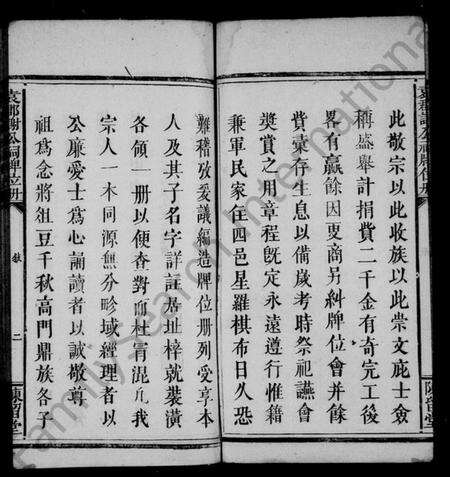 此敬宗以此收族以此崇文庇士僉
稱盛舉計捐費二千金有奇完工後
畧有贏餘因更商另糾牌位會并餘
貲彙存生息以備歲考時祭祀讌會
奬賞之用章程旣定永遠遵行惟籍
兼軍民家在四邑星羅棋布日久恐
陳留堂
袁郡謝公祠牌位册
二
陳留堂
難稽攷爰議編造牌位册列受享本
人及其子名字詳註基址梓就裝潢
各領一册以便查對而杜冐混凢我
宗人一本同源無分畛域經理者以
公廉愛士爲心誦讀者以誠敬尊
祖爲念將俎豆千秋高門鼎族各子
FamilySearch International